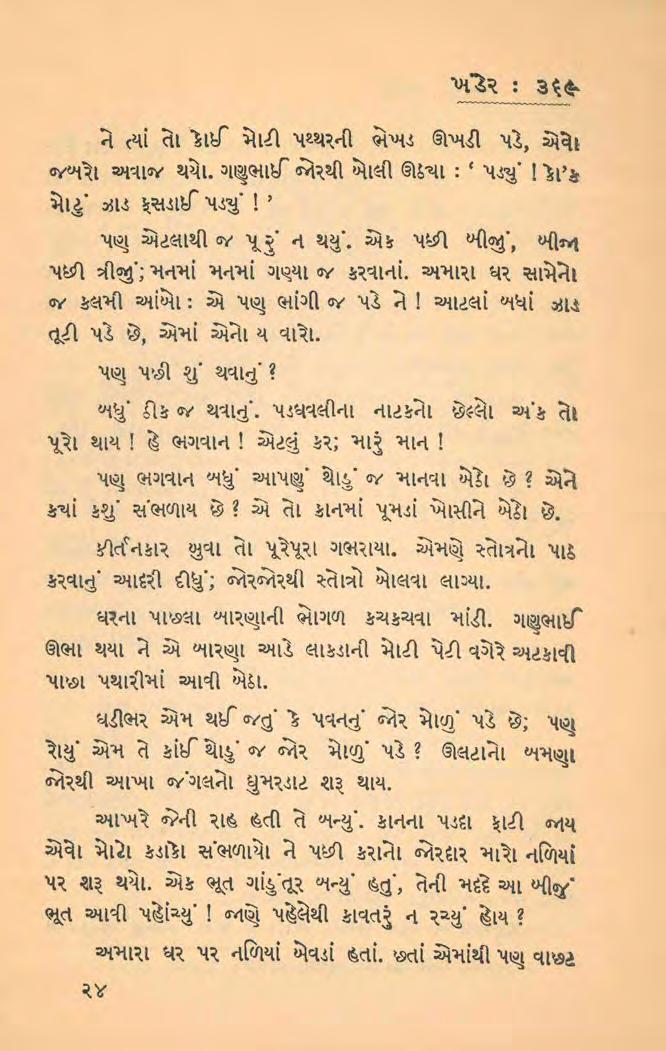 ખંડેર : ૩૬૯
ને ત્યાં તો કોઈ મોટી પથ્થરની ભેખડ ઊખડી પડે, એવો
જબરો અવાજ થયો. ગણુભાઈ જોરથી બોલી ઊઠ્યા : ‘ પડ્યું ! કો’ક
મોટું ઝાડ ફસડાઈ પડ્યું ! ’
પણ એટલાથી જ પૂરું ન થયું. એક પછી બીજું, બીજા
પછી ત્રીજું; મનમાં મનમાં ગણ્યા જ કરવાનાં. અમારા ઘર સામેનો
જ કલમી આંબો : એ પણ ભાંગી જ પડે ને ! આટલાં બધાં ઝાડ
તૂટી પડે છે, એમાં એનો ય વારો.
પણ પછી શું થવાનું ?
બધું ઠીક જ થવાનું. પડઘવલીના નાટકનો છેલ્લો અંક તો
પૂરો થાય ! હે ભગવાન ! એટલું કર; મારું માન !
પણ ભગવાન બધું આપણું થોડું જ માનવા બેઠો છે ? એને
ક્યાં કશું સંભળાય છે ? એ તો કાનમાં પૂમડાં ખોસીને બેઠો છે.
કીર્તનકાર બુવા તો પૂરેપૂરા ગભરાયા. એમણે સ્તોત્રનો પાઠ
કરવાનું આદરી દીધું; જોરજોરથી સ્તોત્રો બોલવા લાગ્યા.
ઘરના પાછલા બારણાની ભોગળ કચકચવા માંડી. ગણુભાઈ
ઊભા થયા ને એ બારણા આડે લાકડાની મોટી પેટી વગેરે અટકાવી
પાછા પથારીમાં આવી બેઠા.
ઘડીભર એમ થઈ જતું કે પવનનું જોર મોળું પડે છે; પણ
રોયું એમ તે કાંઈ થોડું જ જોર મોળું પડે ? ઊલટાનો બમણા
જોરથી આખા જંગલનો ઘુમરડાટ શરૂ થાય.
આખરે જેની રાહ હતી તે બન્યું. કાનના પડદા ફાટી જાય
એવો મોટો કડાકો સંભળાયો ને પછી કરાનો જોરદાર મારો નળિયાં
પર શરૂ થયો. એક ભૂત ગાંડુંતૂર બન્યું હતું, તેની મદદે આ બીજું
ભૂત આવી પહોંચ્યું ! જાણે પહેલેથી કાવતરું ન રચ્યું હોય ?
અમારા ઘર પર નળિયાં બેવડાં હતાં. છતાં એમાંથી પણ વાછટ
૨૪